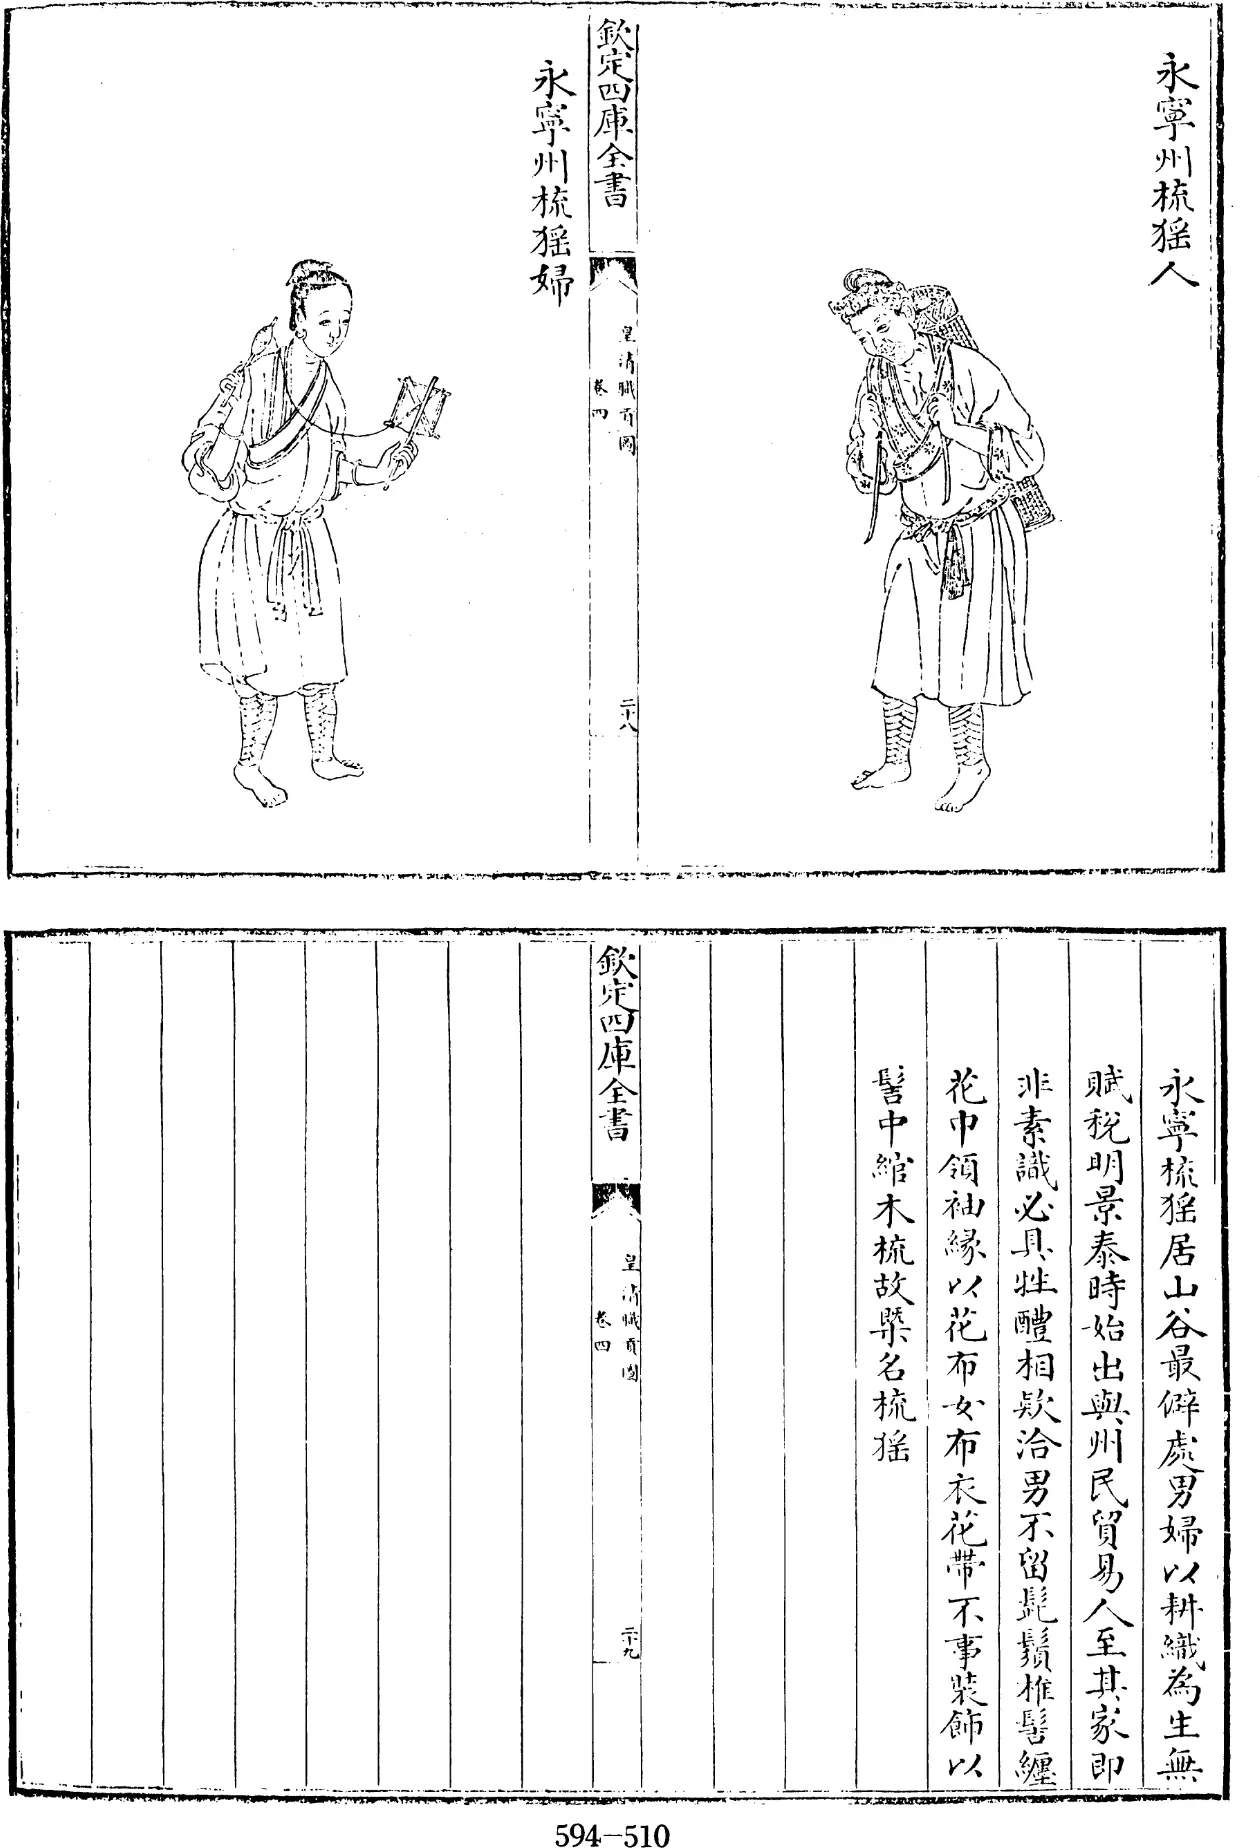 永寧州梳猺人
欽定四庫全書
皇清職貢圖
卷四
二十八
永寧州梳猺婦
永寧梳猺居山谷最僻處男婦以耕織為生無
賦稅明景泰時始出與州民貿易人至其家即
非素識必具牲醴相欵洽男不留髭鬚椎髻纏
花巾領袖緣以花布女布衣花帶不事裝飾以
髻中綰木梳故槩名梳猺
欽定四庫全書
皇清職貢圖
卷四
二十九
594-510